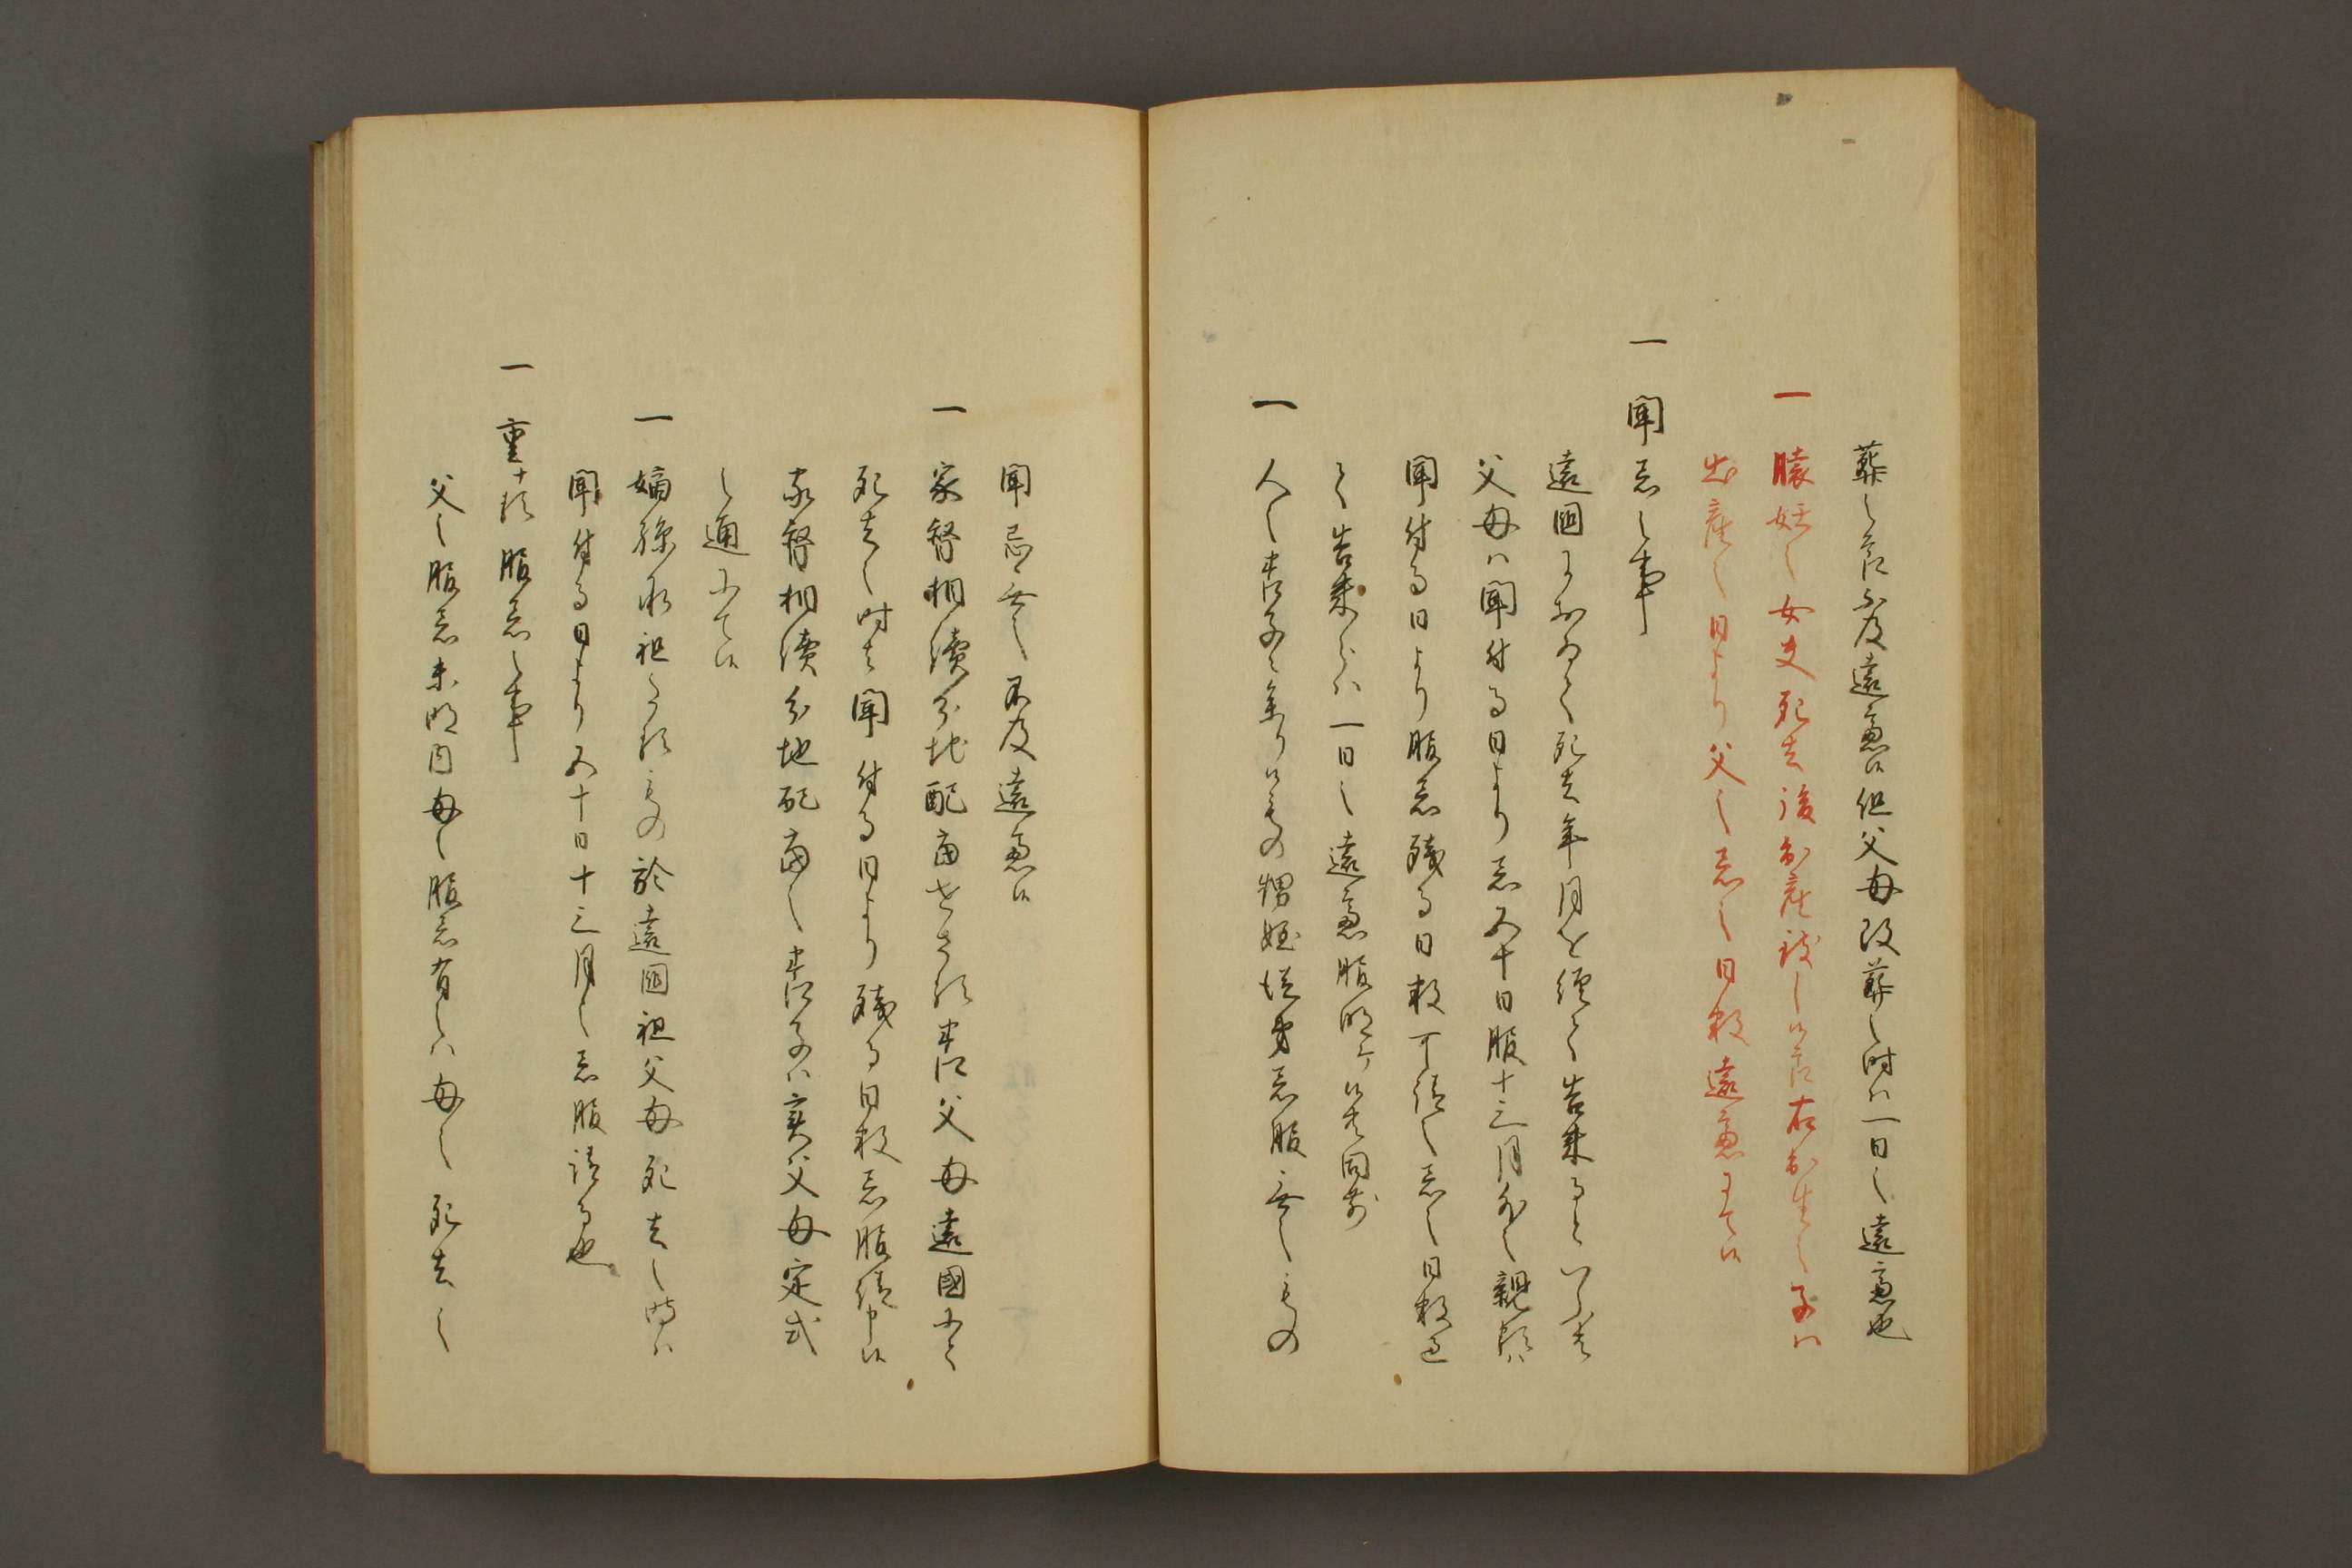 葬之節不及遠慮候但父母改葬之時ハ一日之遠慮也
一 懐妊之女夫死去後出産致し候節右出生之子ハ
出産之日より父之忌之日数遠慮ニ而候
一 聞忌之事
遠国におゐて死去年月を経て告来るといふ共
父母ハ聞付る日より忌五十日服十三月外之親類ハ
聞付る日より服忌残る日数可請之忌之日数過
て告来らハ一日之遠慮服明ケ候共同前
一 人之養子ニ参り候もの甥姪従弟忌服無之もの
聞忌無之不及遠慮候
一 家督相続分地配当せさる養父母遠國ニて
死去之時者聞付る日より残る日数忌服請申候
家督相続分地配当之養子ハ実父母定式
之通ニて候
一 嫡孫承祖たるもの於遠国祖父母死去之時ハ
聞付る日より五十日十三月之忌服請る也
一 重十る服忌之事
父之服忌未明内母之服忌有之ハ母之死去之